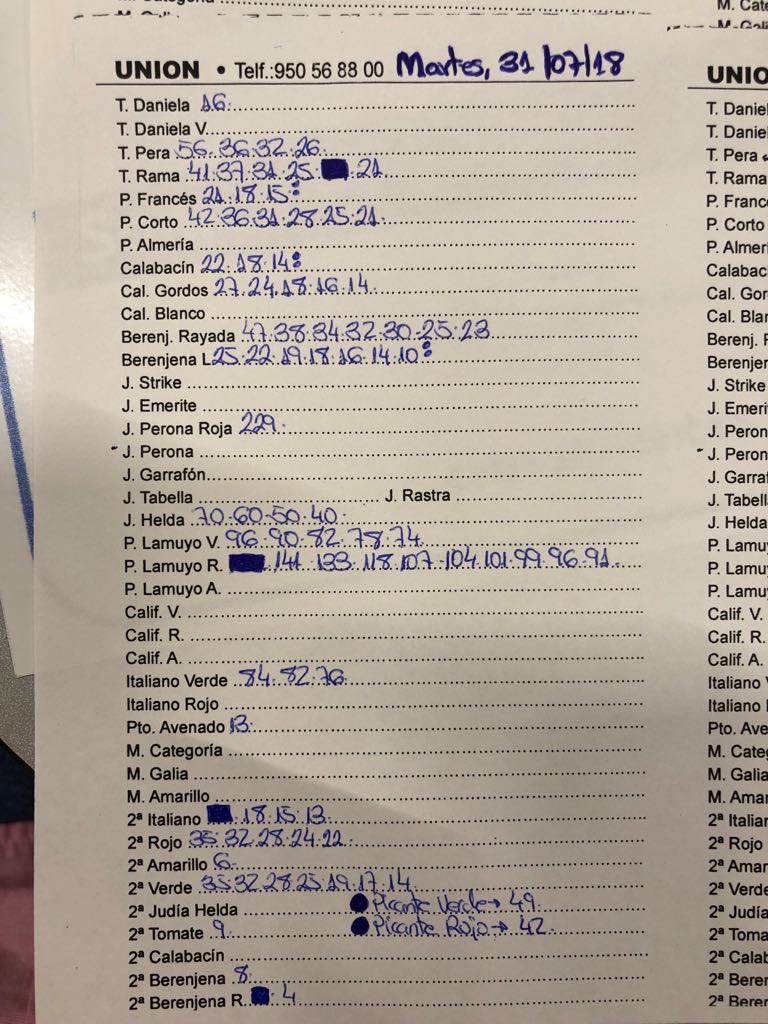 M. Cate
UNION • Telf.:950 56 88 00 Martes, 31/07/18
T. Daniela 16.
T. Daniela V.
T. Pera 56.36.32.26
T. Rama 41.37.31.25. .21
P. Francés 21.18.15:
P. Corto 42.36.31.28.25.21
P. Almería
Calabacín 22.18.14:
Cal. Gordos 27.24.18.16.14
Cal. Blanco
Berenj. Rayada 47.38.34.32.30-25.23
Berenjena L 25.22.19.18.16.14.10:
J. Strike
J. Emerite
J. Perona Roja 229.
J. Perona
J. Garrafón
J. Tabella J. Rastra
J. Helda 70-60-50-40
P. Lamuyo V. 96-90-82.78.74
P. Lamuyo R. 141.133.118.107-104.101.99.96.91.
P. Lamuyo A.
Calif. V.
Calif. R.
Calif. A.
Italiano Verde 84.82.76
Italiano Rojo
Pto. Avenado 13.
M. Categoría
M. Galia
M. Amarillo
2ª Italiano .18.15.13
2ª Rojo 35.32.28.24.22
2ª Amarillo 6
2ª Verde 35.32.28.25.19.17.14
2ª Judía Helda ● Picante Verde→ 49
2ª Tomate 9 ● Picante Rojo→ 42
2ª Calabacín
2ª Berenjena 8
2ª Berenjena R. . 4
UNIO
T. Daniel
T. Daniel
T. Pera
T. Rama
P. Franc
P. Corto
P. Almer
Calabac
Cal. Gor
Cal. Blan
Berenj. F
Berenjer
J. Strike
J. Emeri
J. Peron
J. Peron
J. Garraf
J. Tabell
J. Helda
P. Lamu
P. Lamu
P. Lamu
Calif. V.
Calif. R.
Calif. A.
Italiano V
Italiano
Pto. Ave
M. Categ
M. Galia
M. Amar
2ª Italian
2ª Rojo
2ª Amar
2ª Verde
2ª Judía
2ª Toma
2ª Calab
2ª Beren
2ª Beren